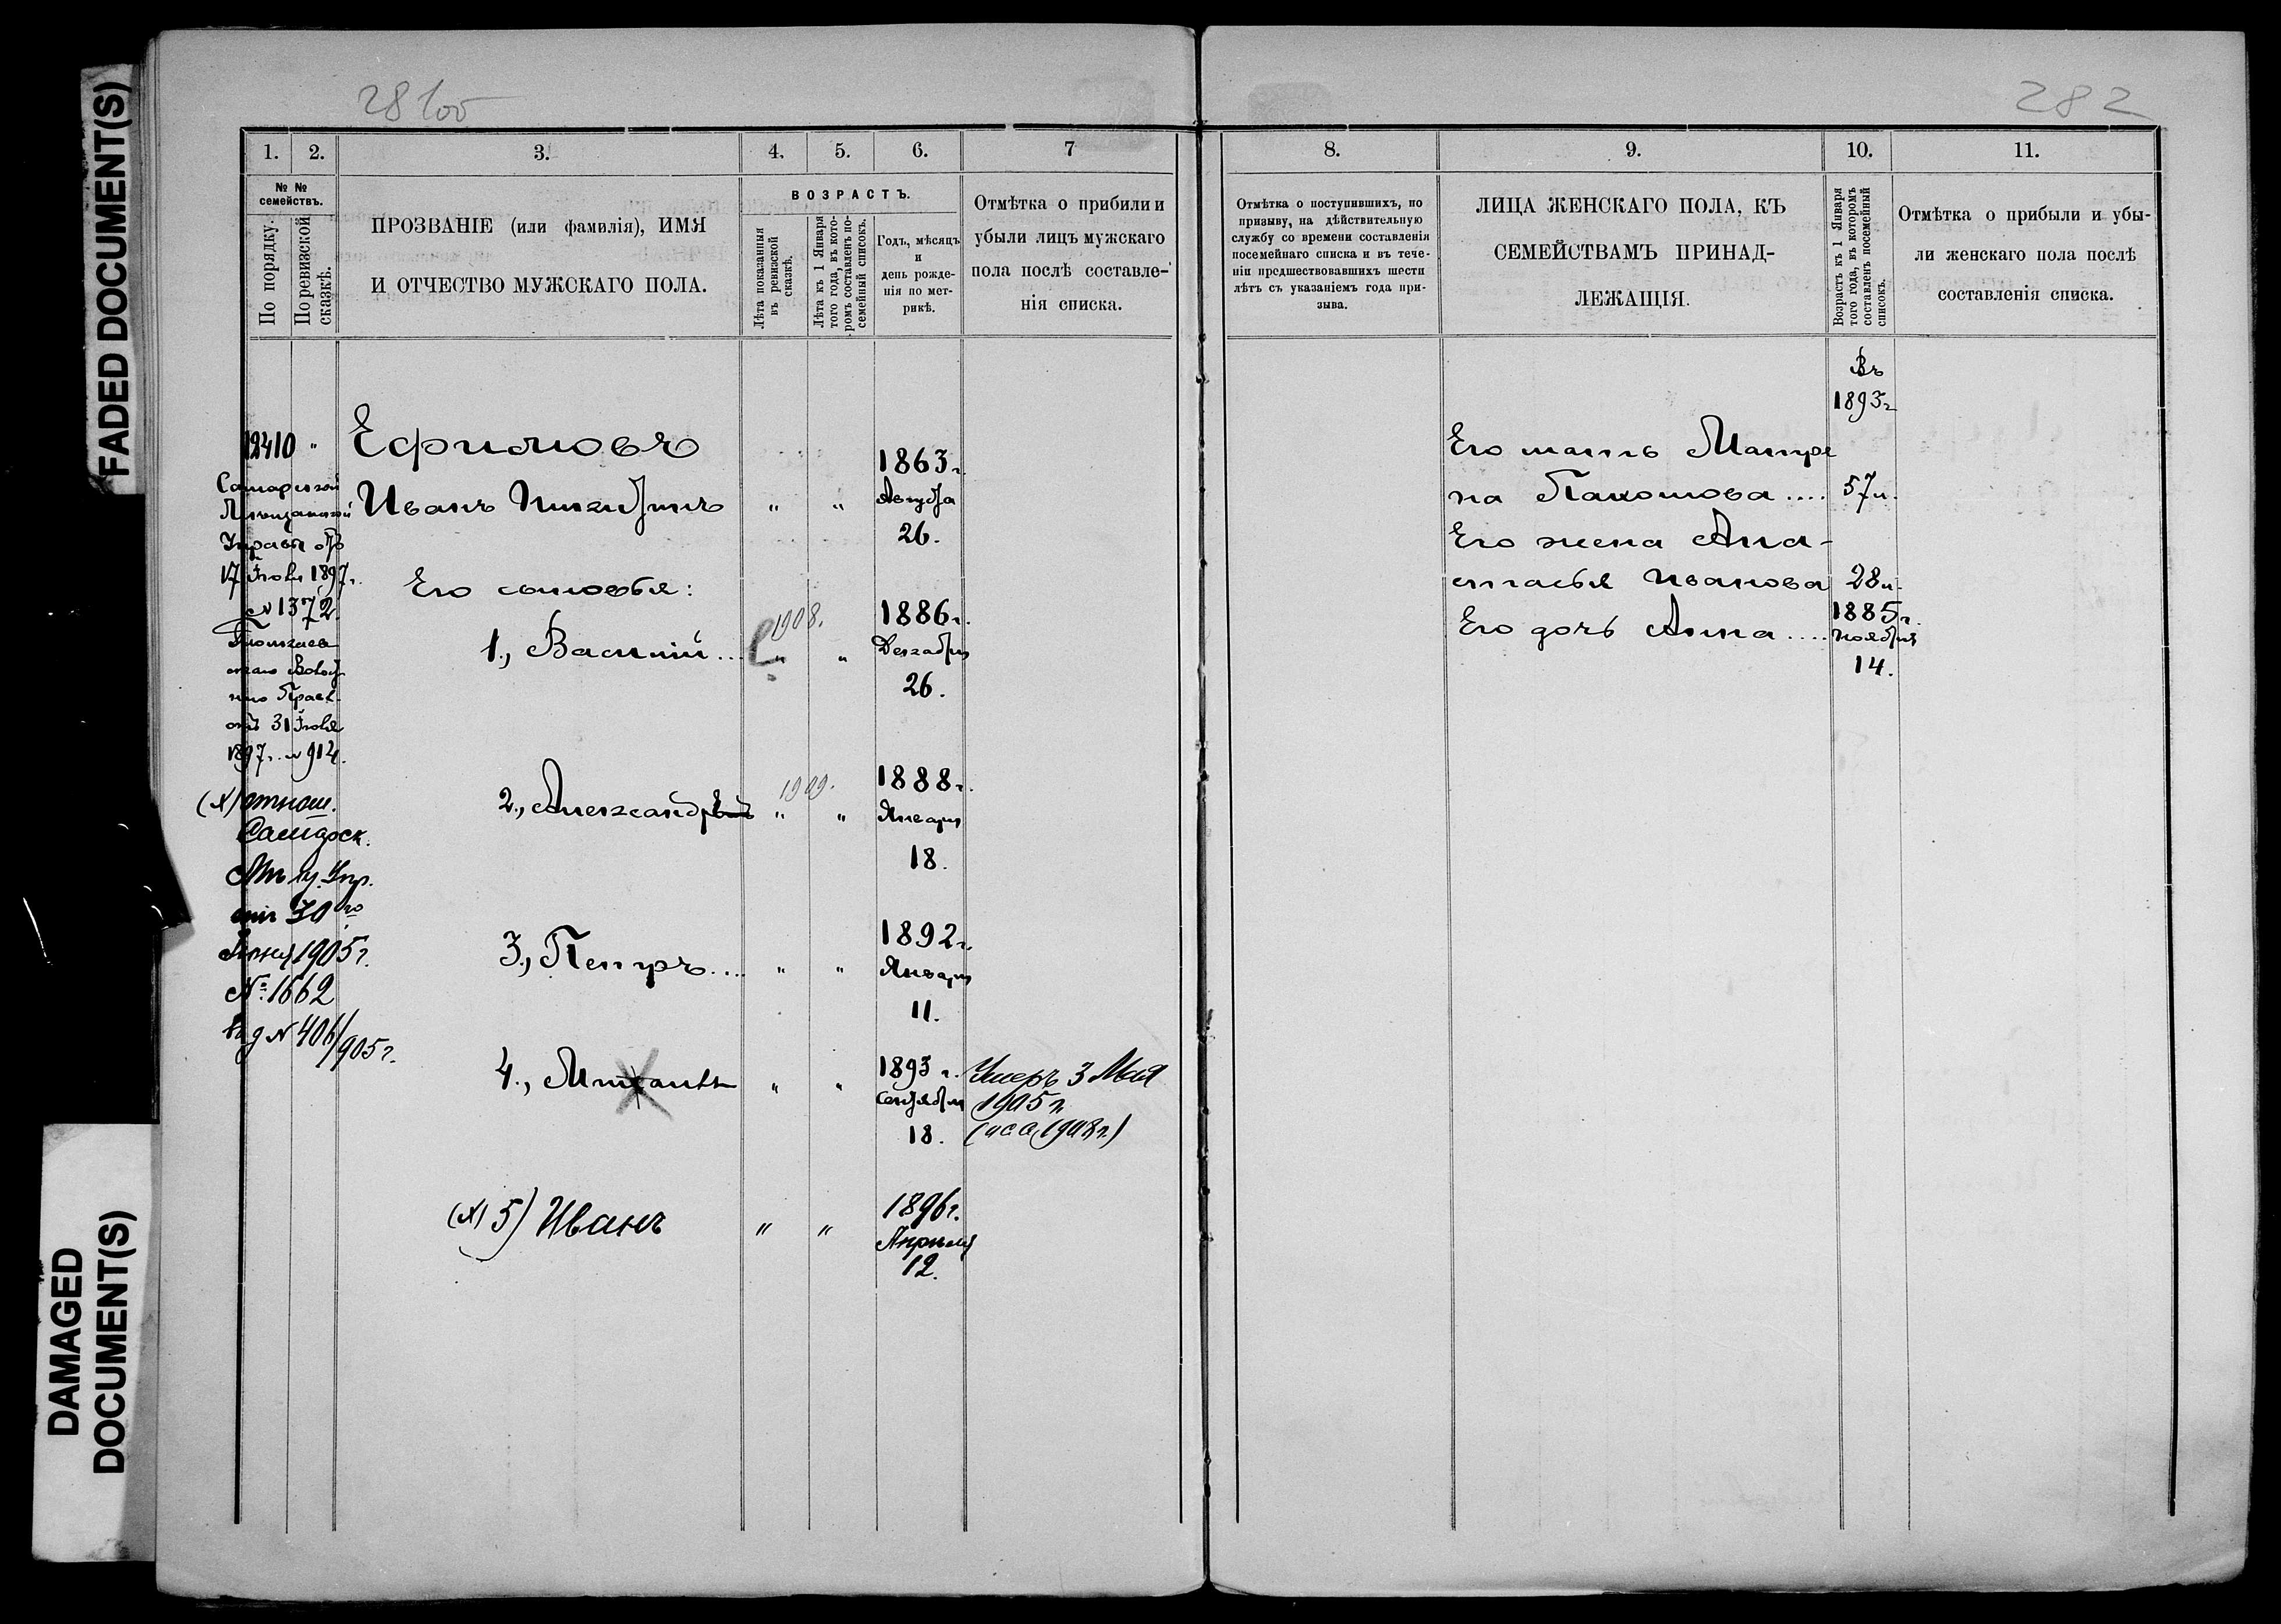 FADED DOCUMENT(S)
DAMAGED
DOCUMENT(S)
28 100
282
1. 2. 3. 4. 5. 6. 7
№ №
семействъ.
По порядку.
По ревизской
сказкѣ.
ПРОЗВАНІЕ (или фамилія), ИМЯ
И ОТЧЕСТВО МУЖСКАГО ПОЛА.
ВОЗРАСТЪ.
Лѣта показанныя
въ ревизской
сказкѣ.
Лѣта къ 1 Января
того года, въ кото-
ромъ составленъ по-
семейный списокъ.
Годъ, мѣсяцъ
и
день рожде-
нія по мет-
рикѣ.
Отмѣтка о прибыли и
убыли лицъ мужскаго
пола послѣ составле-
нія списка.
12410 "
Самарской
Мѣщанской
Управы отъ
17 Іюля 1897 г.
№ 1372.
скаго Волост
наго Правл.
отъ 31 Іюля
1897 г. № 914.
(х) отнош.
Самарск.
Мѣщ. Упр.
отъ 30 го
Іюня 1905 г.
№ 1662
Вх д № 406/905 г.
Ефимовъ
Иванъ " " 1863 г.
Августа
26.
Его сыновья:
1., Василій... 1908. " " 1886 г.
Декабря
26.
2., Александръ 1909. " " 1888 г.
Января
18.
3., Петръ.... " " 1892 г.
Января
11.
4., " " 1893 г.
Сентября
18.
Умеръ 3 Мая
1905 г.
(х) 5) Иванъ " " 1896 г.
Апрѣля
12.
8. 9. 10. 11.
Отмѣтка о поступившихъ, по
призыву, на дѣйствительную
службу со времени составленія
посемейнаго списка и въ тече-
ніи предшествовавшихъ шести
лѣтъ съ указаніемъ года при-
зыва.
ЛИЦА ЖЕНСКАГО ПОЛА, КЪ
СЕМЕЙСТВАМЪ ПРИНАД-
ЛЕЖАЩІЯ.
Возрастъ къ 1 Января
того года, въ которомъ
составленъ посемейный
списокъ.
Отмѣтка о прибыли и убы-
ли женскаго пола послѣ
составленія списка.
Въ
1893 г
Его мать Матре
на Пахомова.... 57 л.
Его жена Ана-
стасья Иванова 28 л.
Его дочь Анна.... 1885 г.
Ноября
14.